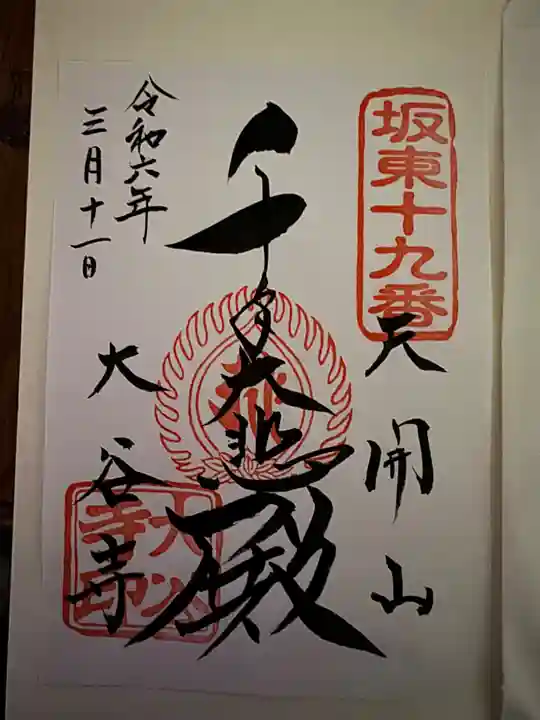 坂東十九番
天開山
千手大悲殿
大谷寺
大谷寺印
令和六年
三月十一日